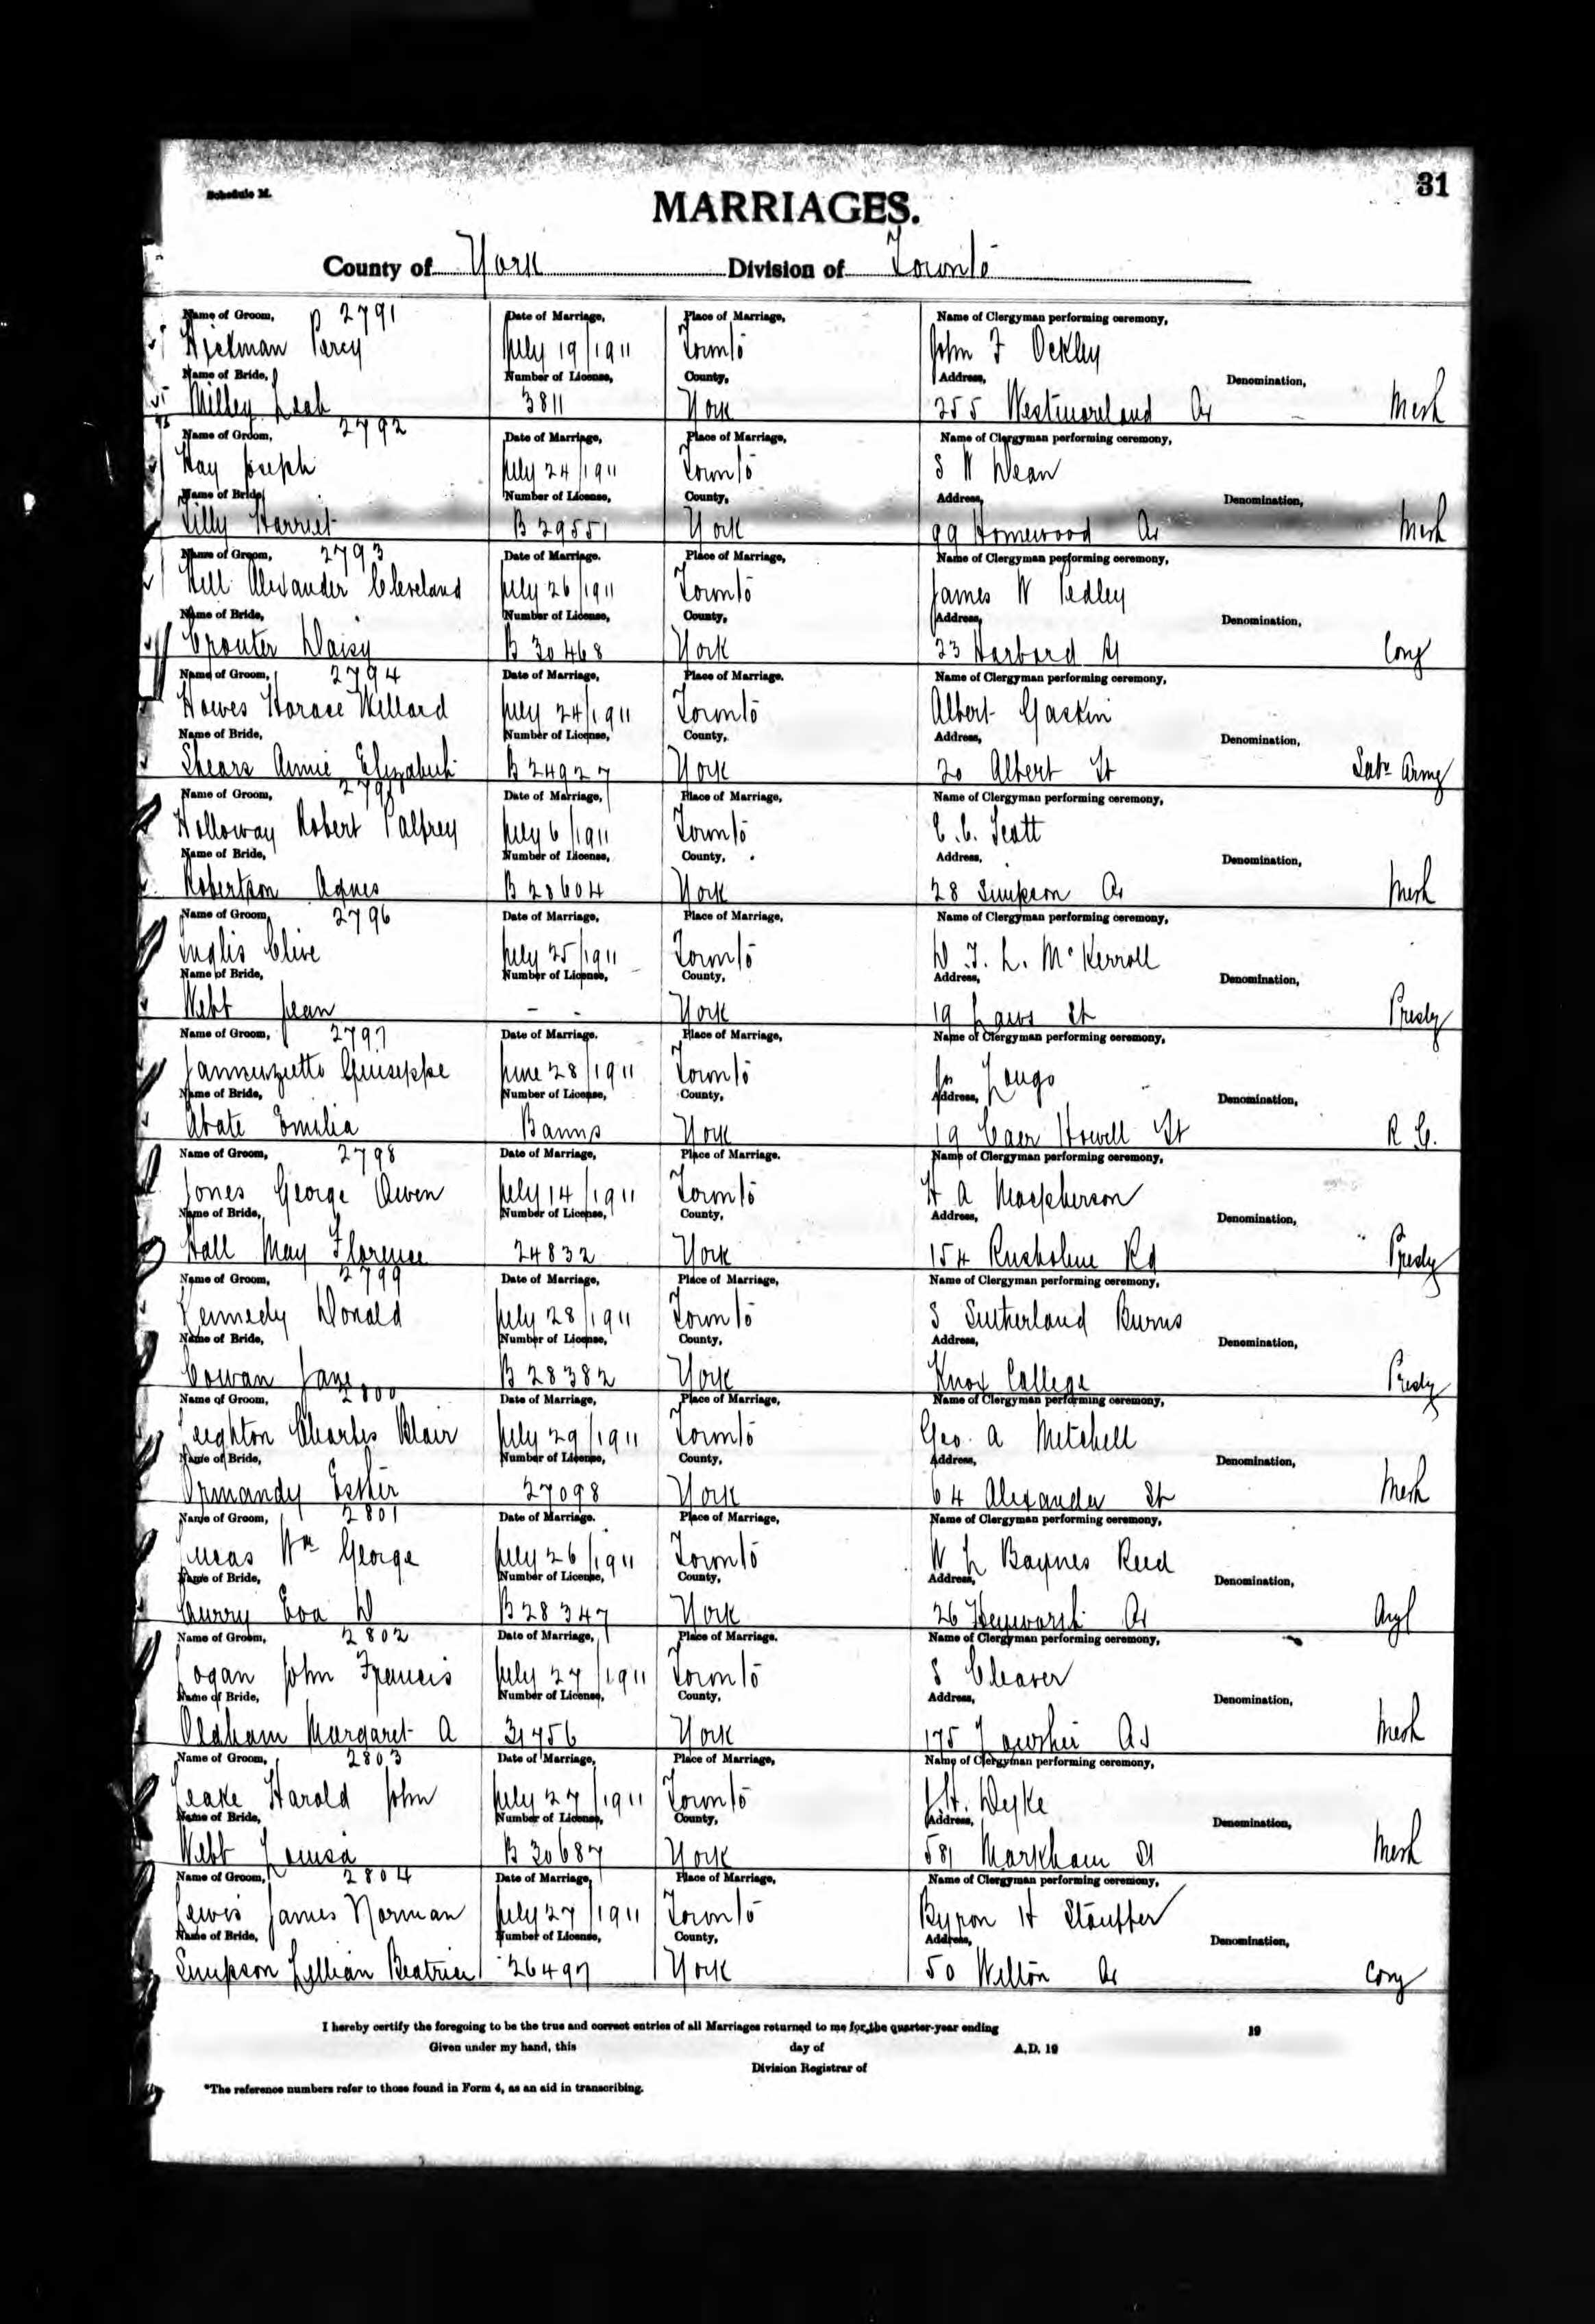 Schedule M.
31
MARRIAGES.
County of York Division of Toronto
Name of Groom, 2791 Date of Marriage, Place of Marriage, Name of Clergyman performing ceremony,
Hickman Percy July 19/1911 Toronto John F Ockley
Name of Bride, Number of License, County, Address, Denomination,
Milley Leah 3811 York 255 Westmoreland Av Meth
Name of Groom, 2792 Date of Marriage, Place of Marriage, Name of Clergyman performing ceremony,
Hay Joseph July 24/1911 Toronto S W Dean
Name of Bride, Number of License, County, Address, Denomination,
Lilly Harriet B 29551 York 99 Homewood Av Meth
Name of Groom, 2793 Date of Marriage. Place of Marriage, Name of Clergyman performing ceremony,
Hill Alexander Cleveland July 26/1911 Toronto James W Pedley
Name of Bride, Number of License, County, Address, Denomination,
Crouter Daisy B 30468 York 23 Harbord St Cong
Name of Groom, 2794 Date of Marriage, Place of Marriage. Name of Clergyman performing ceremony,
Howes Horace Willard July 24/1911 Toronto Albert Gaskin
Name of Bride, Number of License, County, Address, Denomination,
Shears Annie Elizabeth B 24927 York 20 Albert St Salv Army
Name of Groom, 2795 Date of Marriage, Place of Marriage, Name of Clergyman performing ceremony,
Holloway Robert Palfrey July 6/1911 Toronto C. C. Scott
Name of Bride, Number of License, County, Address, Denomination,
Robertson Agnes B 28604 York 28 Simpson Av Meth
Name of Groom, 2796 Date of Marriage, Place of Marriage, Name of Clergyman performing ceremony,
Inglis Clive July 25/1911 Toronto D. T. L. McKerroll
Name of Bride, Number of License, County, Address, Denomination,
Webb Jean - - York 19 Laws St Presby
Name of Groom, 2797 Date of Marriage. Place of Marriage, Name of Clergyman performing ceremony,
Jannuzutto Giuseppe June 28/1911 Toronto Jos Longo
Name of Bride, Number of License, County, Address, Denomination,
Abate Emilia Banns York 19 Caer Howell St R C.
Name of Groom, 2798 Date of Marriage, Place of Marriage. Name of Clergyman performing ceremony,
Jones George Owen July 14/1911 Toronto H A Macpherson
Name of Bride, Number of License, County, Address, Denomination,
Hall May Florence 24832 York 154 Rusholme Rd Presby
Name of Groom, 2799 Date of Marriage, Place of Marriage, Name of Clergyman performing ceremony,
Kennedy Donald July 28/1911 Toronto S Sutherland Burns
Name of Bride, Number of License, County, Address, Denomination,
Cowan Jane B 28382 York Knox College Presby
Name of Groom, 2800 Date of Marriage, Place of Marriage, Name of Clergyman performing ceremony,
Leighton Charles Blair July 29/1911 Toronto Geo. A Mitchell
Name of Bride, Number of License, County, Address, Denomination,
Ormandy Esther 27098 York 64 Alexander St Meth
Name of Groom, 2801 Date of Marriage. Place of Marriage, Name of Clergyman performing ceremony,
Lucas Wm George July 26/1911 Toronto W L Baynes Reed
Name of Bride, Number of License, County, Address, Denomination,
Curry Eva W B 28347 York 26 Heyworth Av Angl
Name of Groom, 2802 Date of Marriage, Place of Marriage. Name of Clergyman performing ceremony,
Logan John Francis July 27/1911 Toronto S Cleaver
Name of Bride, Number of License, County, Address, Denomination,
Oldham Margaret A 31756 York 175 Av Meth
Name of Groom, 2803 Date of Marriage, Place of Marriage, Name of Clergyman performing ceremony,
Leake Harold John July 27/1911 Toronto J H. Dyke
Name of Bride, Number of License, County, Address, Denomination,
Webb Louisa B 30687 York 581 Markham St Meth
Name of Groom, 2804 Date of Marriage, Place of Marriage, Name of Clergyman performing ceremony,
Lewis James Norman July 27/1911 Toronto Byron H Stauffer
Name of Bride, Number of License, County, Address, Denomination,
Simpson Lillian Beatrice 26497 York 50 Wilton Av Cong
I hereby certify the foregoing to be the true and correct entries of all Marriages returned to me for the quarter-year ending 19
Given under my hand, this day of A.D. 19
Division Registrar of
*The reference numbers refer to those found in Form 4, as an aid in transcribing.